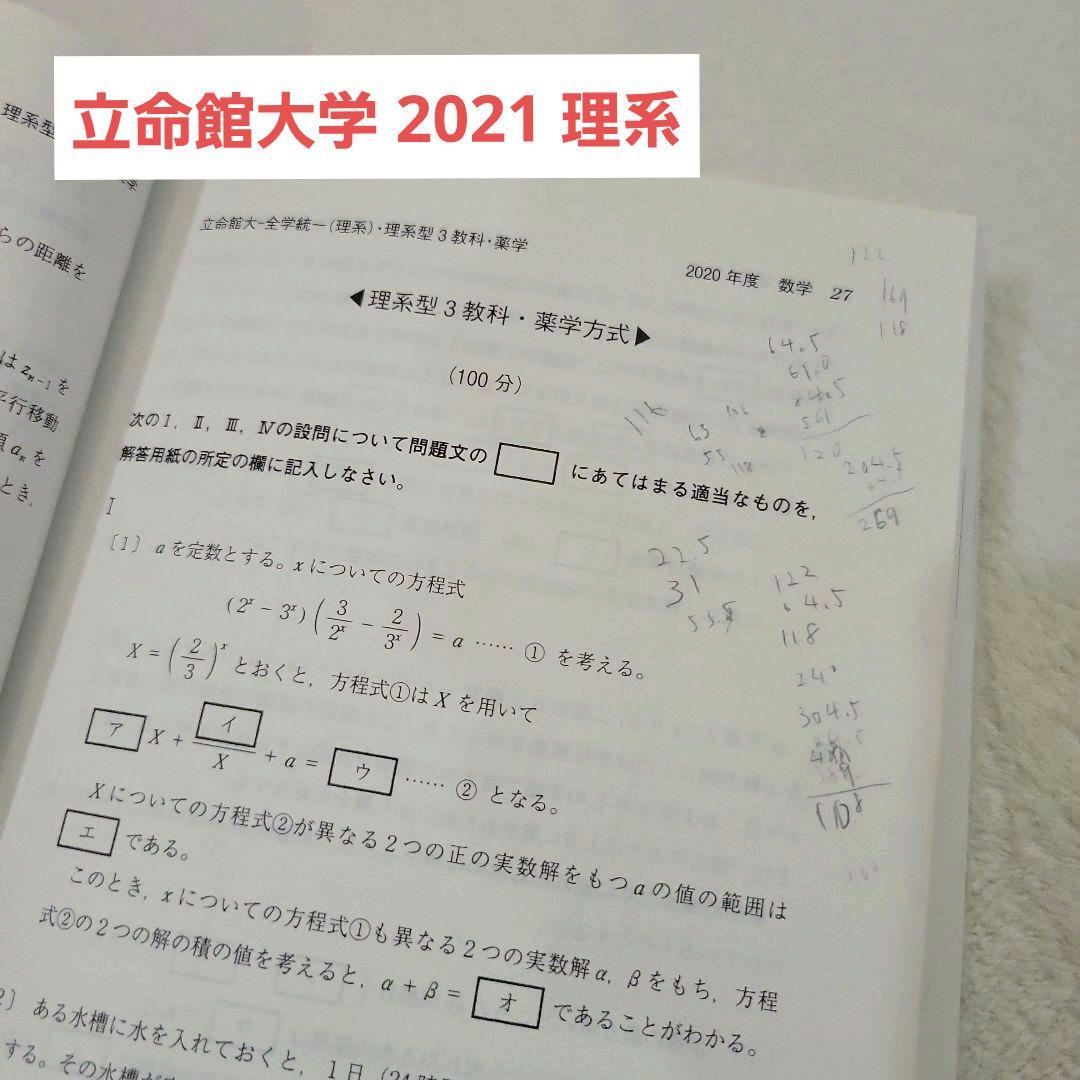 立命館大学 2021 理系
理系型
らの距離を
は zₙ₋₁ を
平行移動
aₙ を
とき,
立命館大-全学統一(理系)・理系型3教科・薬学
2020年度 数学 27
◀理系型3教科・薬学方式▶
(100分)
次のⅠ, Ⅱ, Ⅲ, Ⅳの設問について問題文の□にあてはまる適当なものを,
解答用紙の所定の欄に記入しなさい。
Ⅰ
〔1〕 aを定数とする。xについての方程式
(2ˣ − 3ˣ)(3/2ˣ − 2/3ˣ) = a …… ① を考える。
X = (2/3)ˣ とおくと, 方程式①は X を用いて
ア X + イ/X + a = ウ …… ② となる。
Xについての方程式②が異なる2つの正の実数解をもつaの値の範囲は
エ である。
このとき, xについての方程式①も異なる2つの実数解α, βをもち, 方程
式②の2つの解の積の値を考えると, α + β = オ であることがわかる。
2〕 ある水槽に水を入れておくと, 1日(24時
する。その水槽が
122
169
118
64.5
61.0
120
204.5
269
116
63
55
118
22.5
31
122
64.5
118
304.5